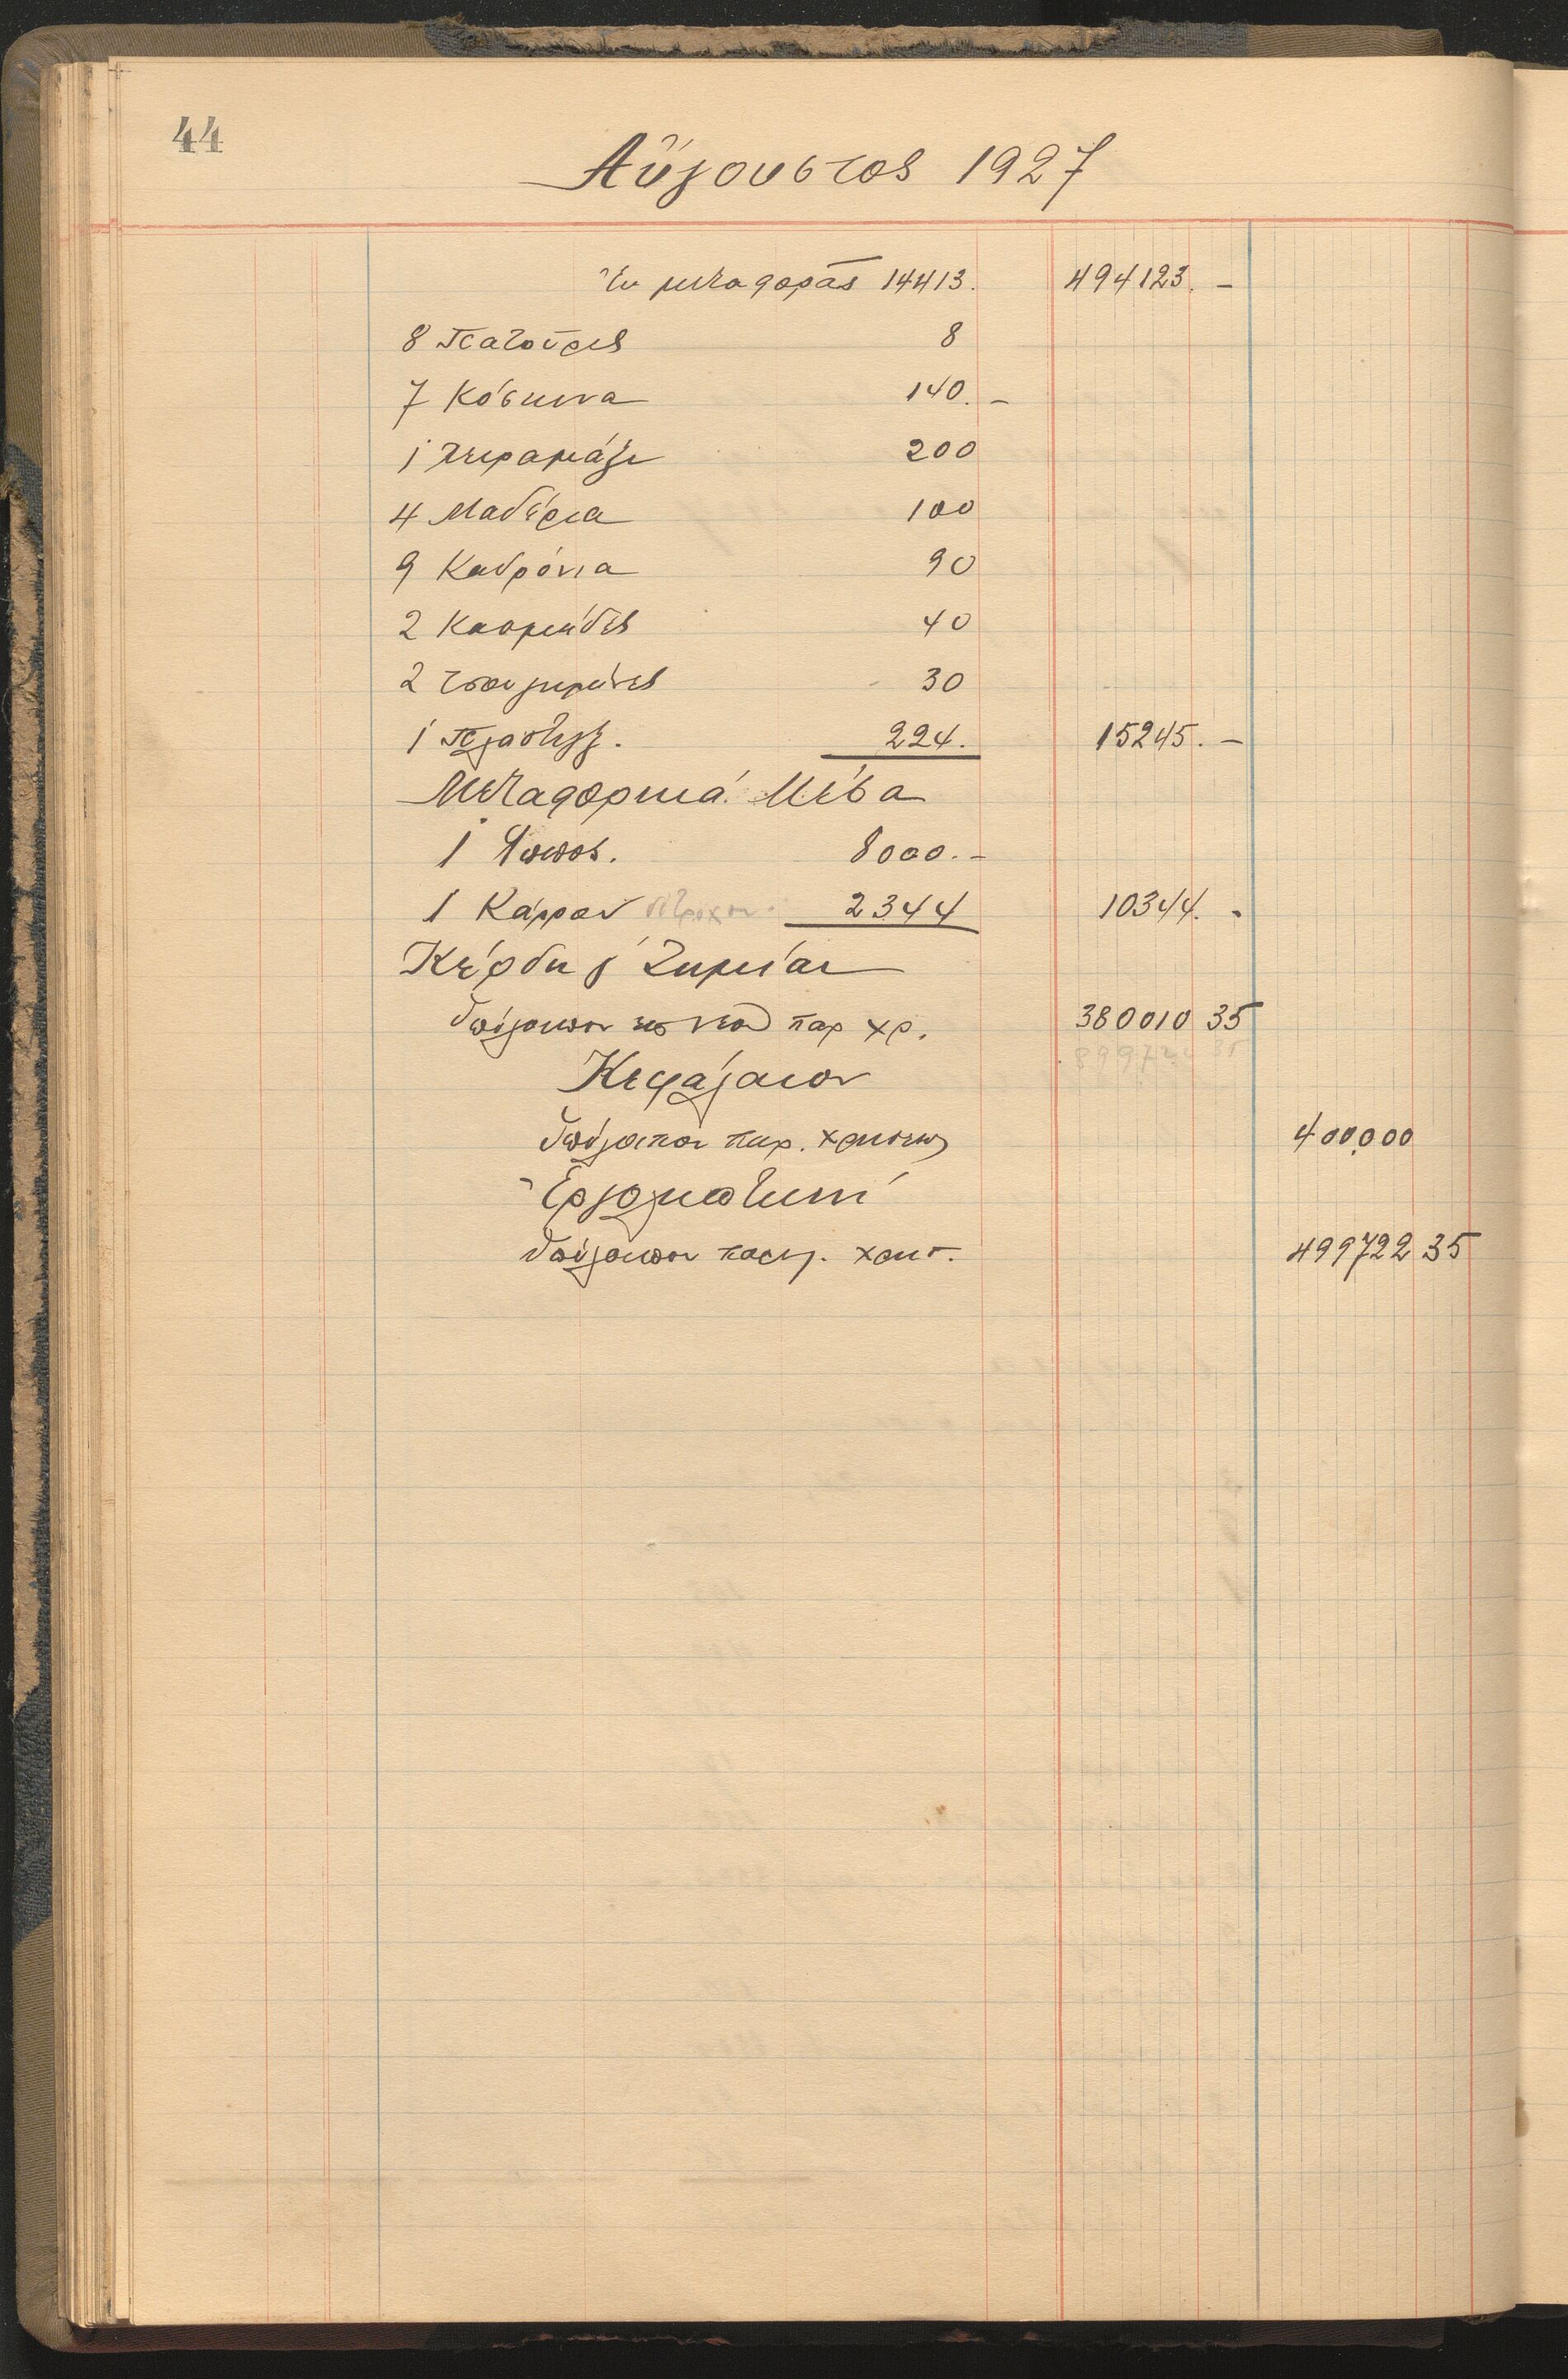 44
Αὔγουστος 1927
Ἐκ μεταφορᾶς 14413. 494123. –
8 Πατούρες 8
7 Κόσκινα 140. –
1 200
4 Μαδέρια 100
9 Καδρόνια 90
2 40
2 30
1 224. 15245. –
Μεταφορικά Μέσα
1 Ἵππος. 8000. –
1 Κάρρον δίτροχον. 2344 10344. –
Κέρδη & Ζημίαι
Ὑπόλοιπον ἐκ νέου παρ χρ. 380010 35
899722 35
Κεφάλαιον
Ὑπόλοιπον παρ. χρήσεως 400.000
Ἐργοληπτική
Ὑπόλοιπον χρήσ. 499722 35